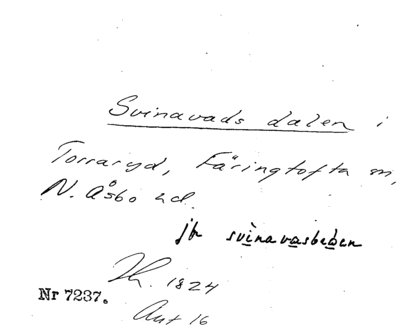 Svinavads dalen i
Torraryd, Färingtofta sn,
N. Åsbo hd.
jfr svinavasbeden
Th. 1824
Nr 7237.
Ant 16